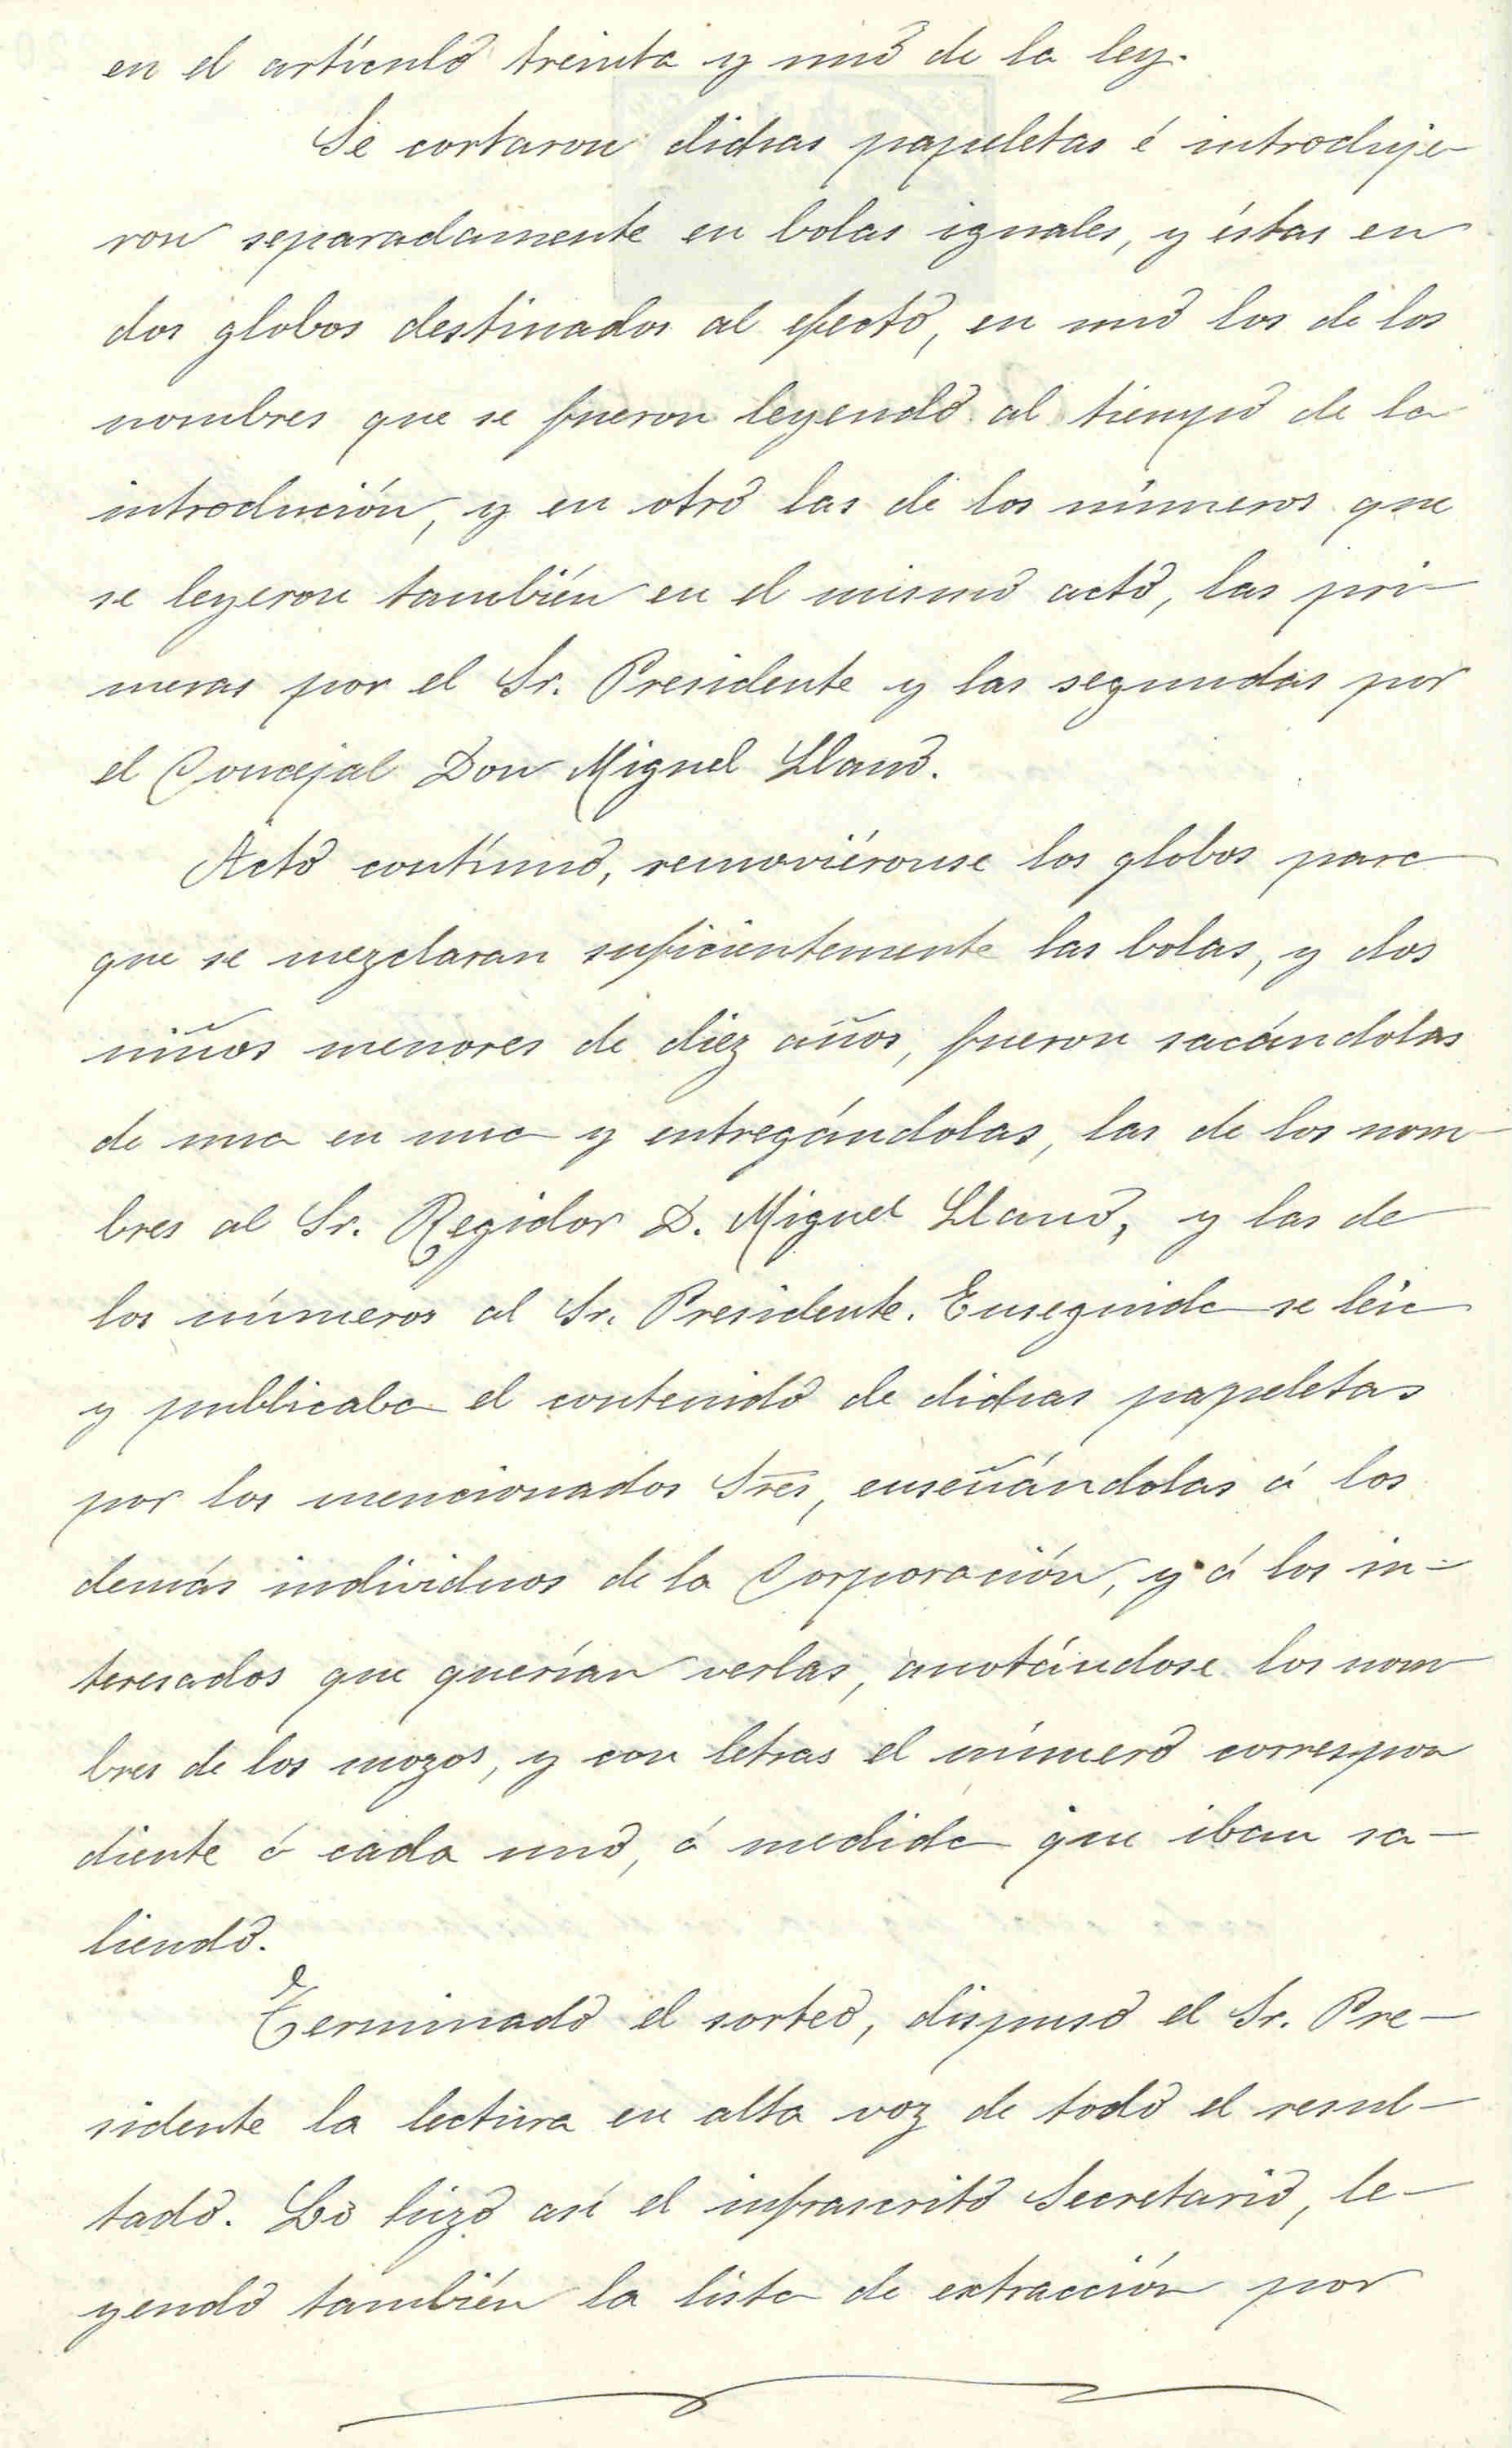 en el artículo treinta y uno de la ley.
Se cortaron dichas papeletas é introduje-
ron separadamente en bolas iguales, y éstas en
dos globos destinados al efecto, en uno las de los
nombres que se fueron leyendo al tiempo de la
introdución, y en otro las de los números que
se leyeron también en el mismo acto, las pri-
meras por el Sr. Presidente y las segundas por
el Concejal Don Miguel Llano.
Acto contínuo, removiéronse los globos para
que se mezclaran suficientemente las bolas, y dos
niños menores de diez años, fueron sacándolas
de una en una y entregándolas, las de los nom-
bres al Sr. Regidor D. Miguel Llano, y las de
los números al Sr. Presidente. Enseguida se leía
y publicaba el contenido de dichas papeletas
por los mencionados Sres, enseñándolas á los
demás individuos de la Corporación, y á los in-
teresados que querían verlas, anotándose los nom
bres de los mozos, y con letras el número correspon
diente á cada uno, á medida que iban sa-
liendo.
Terminado el sorteo, dispuso el Sr. Pre-
sidente la lectura en alta voz de todo el resul-
tado. Lo hizo así el infrascrito Secretario, le-
yendo también la lista de extracción por